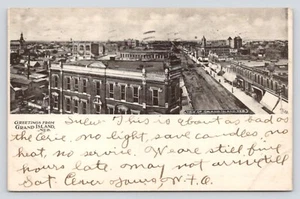 GREETINGS FROM
GRAND ISLAND,
NEB.
This is about as bad as
the Erie. No light, save candles, no
heat, no service. We are still five
hours late. May not arrive till
Sat. Ever Yours W.F.O.